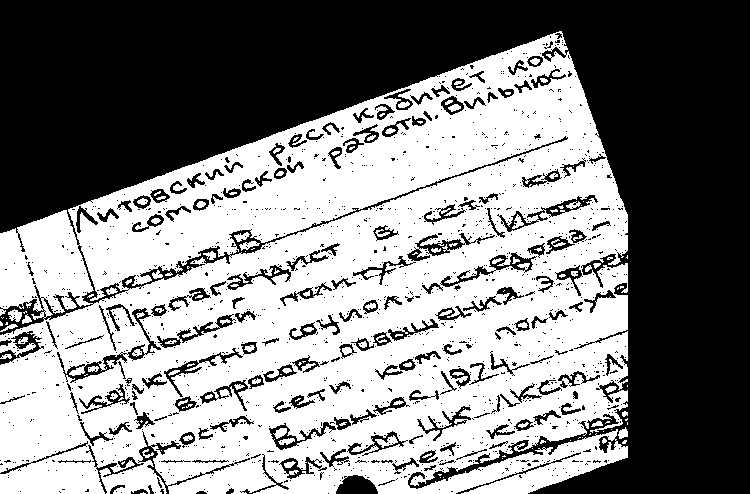 Литовский респ. кабинет ком-
сомольской работы. Вильнюс.
Шепетько, В
Пропагандист в сети ком-
сомольской политучебы (Итоги
конкретно-социол. исследова-
ния вопросов повышения эффек
тивности сети комс. политуче
Вильнюс, 1974.
ВЛКСМ ЦК ЛКСМ Ли
нет комс. ра
См. след. кар